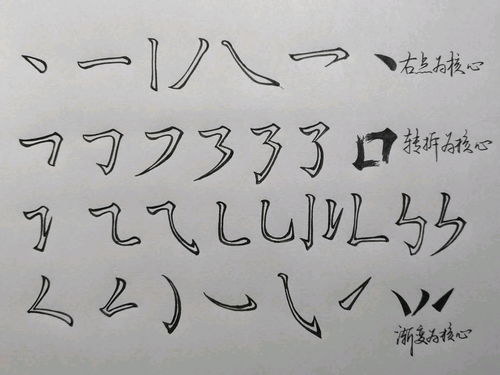 右点为核心
转折为核心
渐变为核心